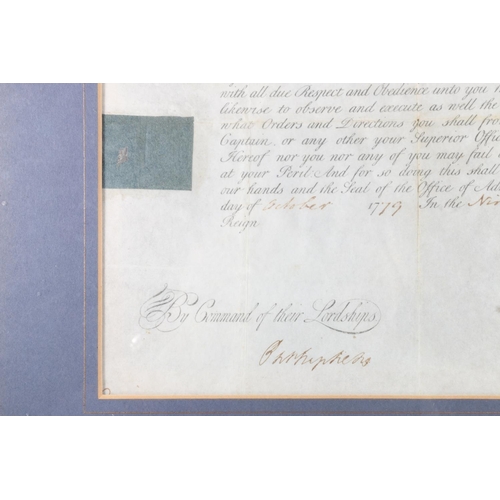 with all due Respect and Obedience unto you
likewise to observe and execute as well the
what Orders and Directions you shall fro
Captain, or any other your Superior Offic
Hereof nor you nor any of you may fail
at your Peril And for so doing this shall
our hands and the Seal of the Office of Ad
day of October 1779 In the Nin
Reign
By Command of their Lordships